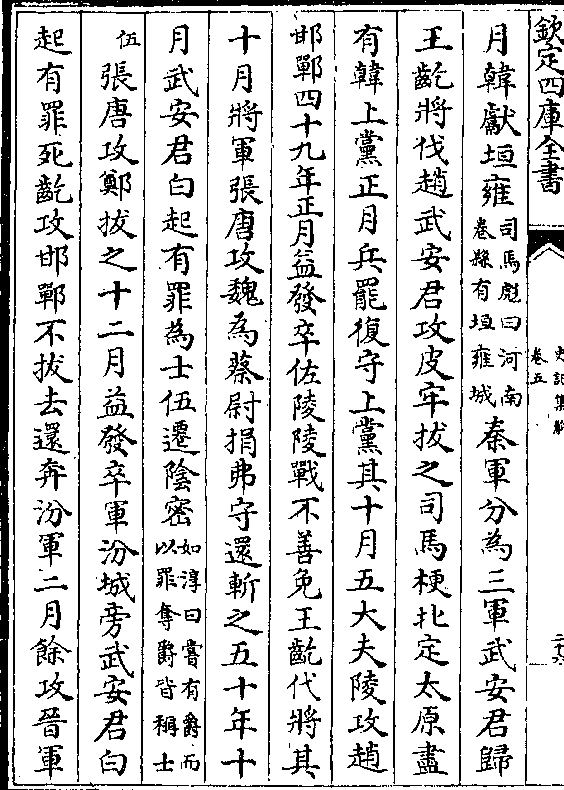 欽定四庫全書
史記集解
卷五
二十六
月韓獻垣雍司馬彪曰河南卷縣有垣雍城秦軍分為三軍武安君歸
王齕將伐趙武安君攻皮牢拔之司馬梗北定太原盡
有韓上黨正月兵罷復守上黨其十月五大夫陵攻趙
邯鄲四十九年正月益發卒佐陵陵戰不善免王齕代將其
十月將軍張唐攻魏為蔡尉捐弗守還斬之五十年十
月武安君白起有罪為士伍遷陰密如淳曰嘗有爵而以罪奪爵皆稱士
伍張唐攻鄭拔之十二月益發卒軍汾城旁武安君白
起有罪死齕攻邯鄲不拔去還奔汾軍二月餘攻晉軍